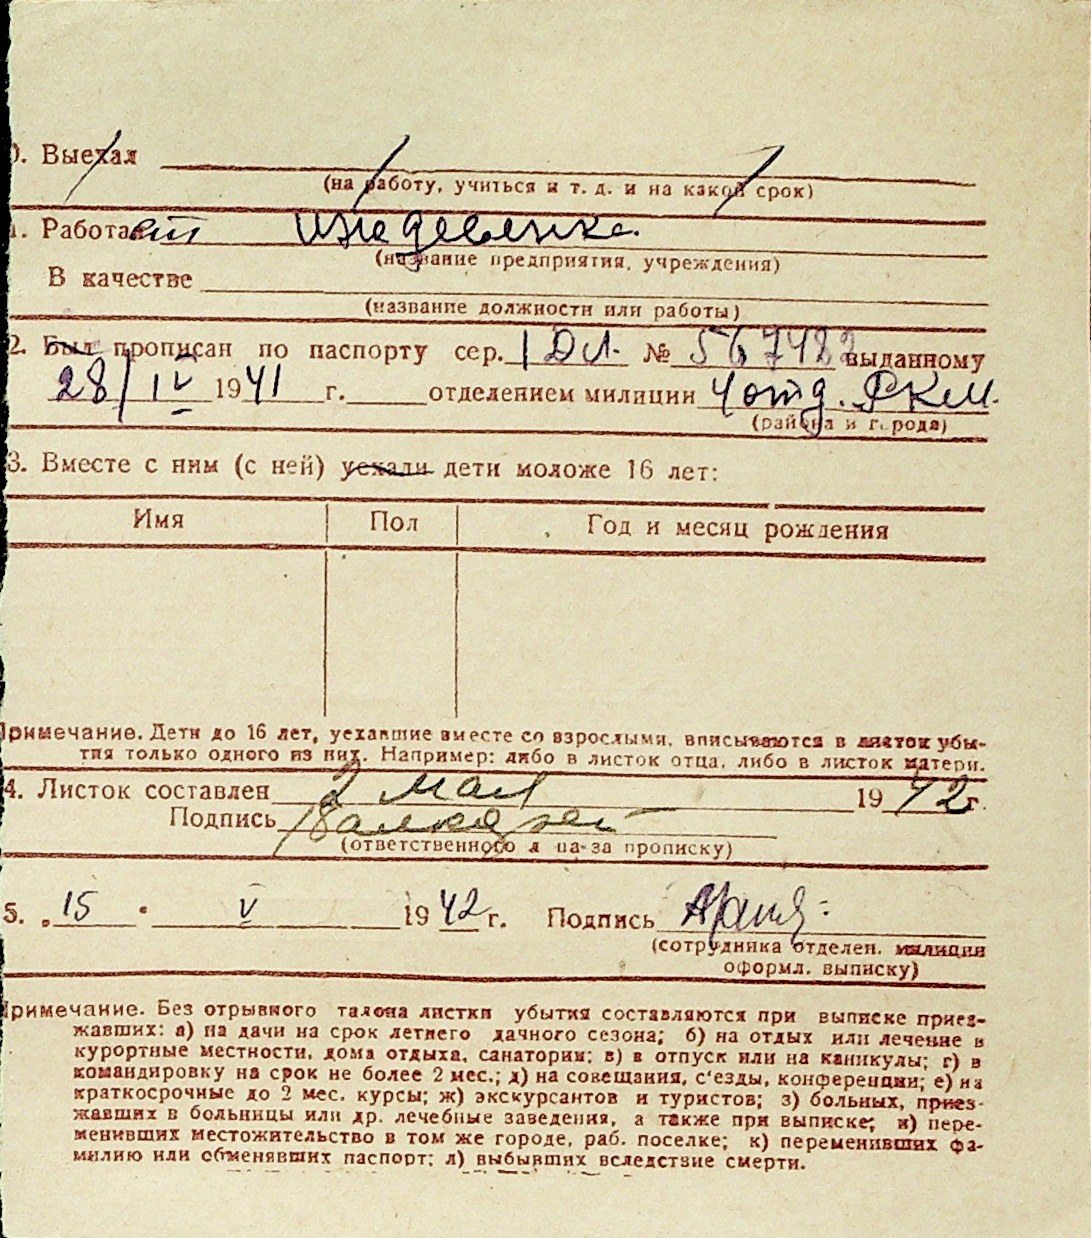 0. Выехал
(на работу, учиться и т. д. и на какой срок)
1. Работает иждевенка.
(название предприятия, учреждения)
В качестве
(название должности или работы)
2. Был прописан по паспорту сер. I ДЛ. № 567482 выданному
28/IV 1941 г. отделением милиции 4 отд. РКМ.
(района и города)
3. Вместе с ним (с ней) уехали дети моложе 16 лет:
Имя Пол Год и месяц рождения
Примечание. Дети до 16 лет, уехавшие вместе со взрослыми, вписываются в листок убы-
тия только одного из них. Например: либо в листок отца, либо в листок матери.
4. Листок составлен 2 мая 1942 г.
Подпись
(ответственного л ца за прописку)
5. „15 “ V 1942 г. Подпись
(сотрудника отделен. милиции
оформл. выписку)
Примечание. Без отрывного талона листки убытия составляются при выписке приез-
жавших: а) на дачи на срок летнего дачного сезона; б) на отдых или лечение в
курортные местности, дома отдыха, санатории; в) в отпуск или на каникулы; г) в
командировку на срок не более 2 мес.; д) на совещания, с'езды, конференции; е) на
краткосрочные до 2 мес. курсы; ж) экскурсантов и туристов; з) больных, приез-
жавших в больницы или др. лечебные заведения, а также при выписке; и) пере-
менивших местожительство в том же городе, раб. поселке; к) переменивших фа-
милию или обменявших паспорт; л) выбывших вследствие смерти.